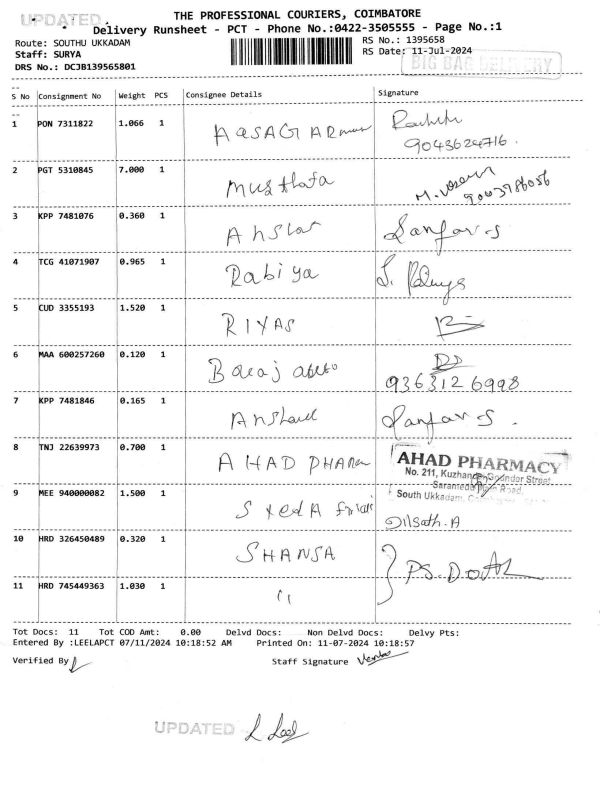 UPDATED
THE PROFESSIONAL COURIERS, COIMBATORE
Delivery Runsheet - PCT - Phone No.:0422-3505555 - Page No.:1
Route: SOUTHU UKKADAM
RS No.: 1395658
Staff: SURYA
RS Date: 11-Jul-2024
DRS No.: DCJB139565801
BIG BAG DELIVERY
S No Consignment No Weight PCS Consignee Details Signature
1 PON 7311822 1.066 1
9043624716.
2 PGT 5310845 7.000 1 Musthafa
3 KPP 7481076 0.360 1
4 TCG 41071907 0.965 1 Rabiya
5 CUD 3355193 1.520 1 RIYAS
6 MAA 600257260 0.120 1
9363126998
7 KPP 7481846 0.165 1
8 TNJ 22639973 0.700 1 AHAD
AHAD PHARMACY
No. 211, Street,
Road,
South Ukkadam,
9 MEE 940000082 1.500 1
Dilsath.A
10 HRD 326450489 0.320 1 SHANSA
11 HRD 745449363 1.030 1 "
Tot Docs: 11 Tot COD Amt: 0.00 Delvd Docs: Non Delvd Docs: Delvy Pts:
Entered By :LEELAPCT 07/11/2024 10:18:52 AM Printed On: 11-07-2024 10:18:57
Verified By Staff Signature
UPDATED